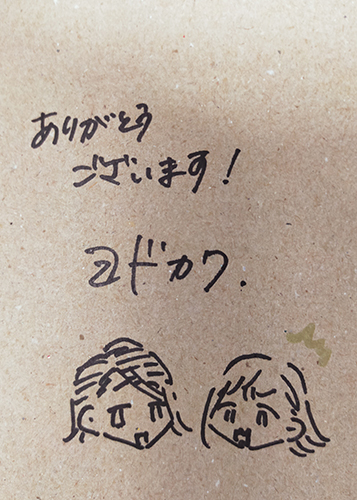 ありがとう
ございます!
ヱドカワ.